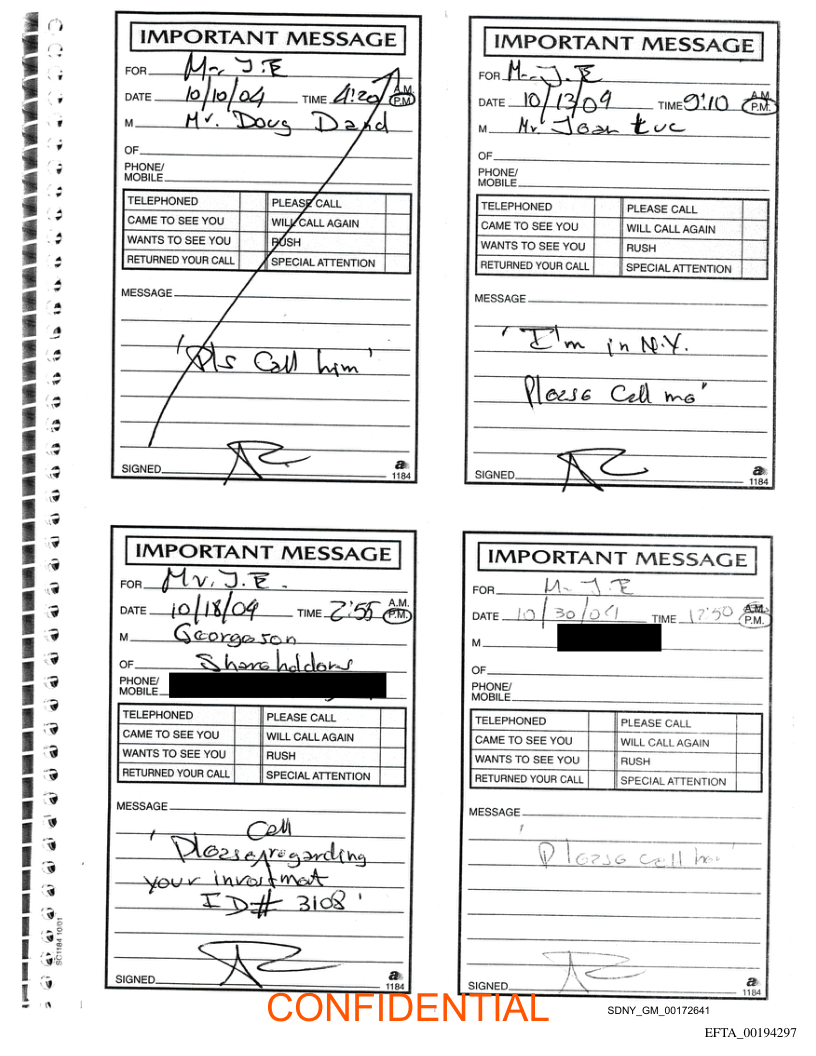 IMPORTANT MESSAGE
FOR Mr. J.E
DATE 10/10/04 TIME 4:20 A.M. P.M.
M Mr. Doug Dand
OF
PHONE/
MOBILE
TELEPHONED PLEASE CALL
CAME TO SEE YOU WILL CALL AGAIN
WANTS TO SEE YOU RUSH
RETURNED YOUR CALL SPECIAL ATTENTION
MESSAGE
'Pls Call him'
SIGNED
a
1184
IMPORTANT MESSAGE
FOR Mr. J.E
DATE 10/13/04 TIME 9:10 A.M. P.M.
M Mr. Jean Luc
OF
PHONE/
MOBILE
TELEPHONED PLEASE CALL
CAME TO SEE YOU WILL CALL AGAIN
WANTS TO SEE YOU RUSH
RETURNED YOUR CALL SPECIAL ATTENTION
MESSAGE
'I'm in N.Y.
Please Call me"
SIGNED
a
1184
IMPORTANT MESSAGE
FOR Mr. J.E.
DATE 10/18/04 TIME 2:55 A.M. P.M.
M Georgeson
OF Shareholders
PHONE/
MOBILE
TELEPHONED PLEASE CALL
CAME TO SEE YOU WILL CALL AGAIN
WANTS TO SEE YOU RUSH
RETURNED YOUR CALL SPECIAL ATTENTION
MESSAGE
Call
'Please regarding
your investmet
ID# 3108'
SIGNED
a
1184
IMPORTANT MESSAGE
FOR Mr. J.E
DATE 10/30/04 TIME 12:50 A.M. P.M.
M
OF
PHONE/
MOBILE
TELEPHONED PLEASE CALL
CAME TO SEE YOU WILL CALL AGAIN
WANTS TO SEE YOU RUSH
RETURNED YOUR CALL SPECIAL ATTENTION
MESSAGE
'Please call her
SIGNED
a
1184
SC1184 10/01
CONFIDENTIAL
SDNY_GM_00172641
EFTA_00194297